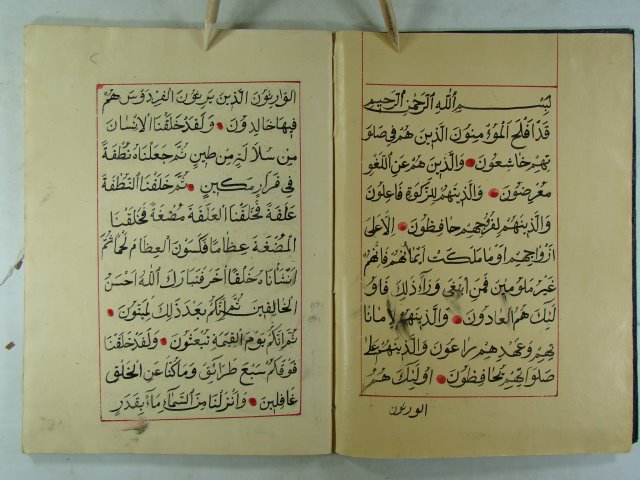 بِسْمِ اللّٰهِ الرَّحْمٰنِ الرَّحِيمِ
قَدْ اَفْلَحَ الْمُؤْمِنُونَ الَّذِينَ هُمْ فِي صَلَو
تِهِمْ خَاشِعُونَ وَالَّذِينَ هُمْ عَنِ اللَّغْوِ
مُعْرِضُونَ وَالَّذِينَهُمْ لِلزَّكٰوةِ فَاعِلُونَ
وَالَّذِينَهُمْ لِفُرُوجِهِمْ حَافِظُونَ اِلَّا عَلٰى
اَزْوَاجِهِمْ اَوْ مَا مَلَكَتْ اَيْمَانُهُمْ فَاِنَّهُمْ
غَيْرُ مَلُومِينَ فَمَنِ ابْتَغٰى وَرَآءَ ذٰلِكَ فَاُو
لٰئِكَ هُمُ الْعَادُونَ وَالَّذِينَهُمْ لِاَمَانَا
تِهِمْ وَعَهْدِهِمْ رَاعُونَ وَالَّذِينَهُمْ عَلٰى
صَلَوَاتِهِمْ يُحَافِظُونَ اُولٰئِكَ هُمُ
الوارثون
الْوَارِثُونَ الَّذِينَ يَرِثُونَ الْفِرْدَوْسَ هُمْ
فِيهَا خَالِدُونَ وَلَقَدْ خَلَقْنَا الْاِنْسَانَ
مِنْ سُلَالَةٍ مِنْ طِينٍ ثُمَّ جَعَلْنَاهُ نُطْفَةً
فِي قَرَارٍ مَكِينٍ ثُمَّ خَلَقْنَا النُّطْفَةَ
عَلَقَةً فَخَلَقْنَا الْعَلَقَةَ مُضْغَةً فَخَلَقْنَا
الْمُضْغَةَ عِظَامًا فَكَسَوْنَ الْعِظَامَ لَحْمًا ثُمَّ
اَنْشَأْنَاهُ خَلْقًا اٰخَرَ فَتَبَارَكَ اللّٰهُ اَحْسَنُ
الْخَالِقِينَ ثُمَّ اِنَّكُمْ بَعْدَ ذٰلِكَ لَمَيِّتُونَ
ثُمَّ اِنَّكُمْ يَوْمَ الْقِيٰمَةِ تُبْعَثُونَ وَلَقَدْ خَلَقْنَا
فَوْقَكُمْ سَبْعَ طَرَائِقَ وَمَا كُنَّا عَنِ الْخَلْقِ
غَافِلِينَ وَاَنْزَلْنَا مِنَ السَّمَآءِ مَآءً بِقَدَرٍ